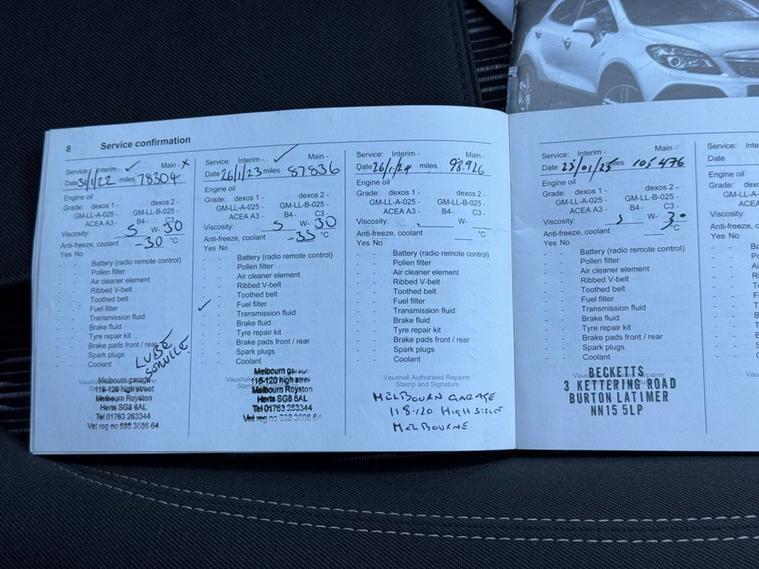 8 Service confirmation
Service: Interim - ✓ Main - x
Date 31/1/22 miles 78304
Engine oil
Grade: dexos 1 - dexos 2 -
GM-LL-A-025 - GM-LL-B-025 -
ACEA A3 - B4 - C3 -
Viscosity: 5 W- 30
Anti-freeze, coolant -30 °C
Yes No
- - Battery (radio remote control)
- - Pollen filter
- - Air cleaner element
- - Ribbed V-belt
- - Toothed belt
- - Fuel filter
- - Transmission fluid
- - Brake fluid
- - Tyre repair kit
- - Brake pads front / rear
- - Spark plugs
- - Coolant
LUBE
SERVICE
Melbourn garage
118-120 high street
Melbourn Royston
Herts SG8 6AL
Tel 01763 263344
Vat reg no 688 3686 64
Service: Interim - ✓ Main -
Date 26/1/23 miles 87836
Engine oil
Grade: dexos 1 - dexos 2 -
GM-LL-A-025 - GM-LL-B-025 -
ACEA A3 - B4 - C3 -
Viscosity: 5 W- 30
Anti-freeze, coolant -35 °C
Yes No
- - Battery (radio remote control)
- - Pollen filter
- - Air cleaner element
- - Ribbed V-belt
- - Toothed belt
✓ - Fuel filter
- - Transmission fluid
- - Brake fluid
- - Tyre repair kit
- - Brake pads front / rear
- - Spark plugs
- - Coolant
Melbourn garage
118-120 high street
Melbourn Royston
Herts SG8 6AL
Tel 01763 263344
Vat reg no 688 3686 64
Service: Interim - Main -
Date 26/1/24 miles 98.926
Engine oil
Grade: dexos 1 - dexos 2 -
GM-LL-A-025 - GM-LL-B-025 -
ACEA A3 - B4 - C3 -
Viscosity: W-
Anti-freeze, coolant °C
Yes No
- - Battery (radio remote control)
- - Pollen filter
- - Air cleaner element
- - Ribbed V-belt
- - Toothed belt
- - Fuel filter
- - Transmission fluid
- - Brake fluid
- - Tyre repair kit
- - Brake pads front / rear
- - Spark plugs
- - Coolant
Vauxhall Authorised Repairer
Stamp and Signature
MELBOURN GARAGE
118-120 HIGH STREET
MELBOURNE
Service: Interim - Main -
Date 23/01/25 miles 105476
Engine oil
Grade: dexos 1 - dexos 2 -
GM-LL-A-025 - GM-LL-B-025 -
ACEA A3 - B4 - C3 -
Viscosity: 5 W- 30
Anti-freeze, coolant °C
Yes No
- - Battery (radio remote control)
- - Pollen filter
- - Air cleaner element
- - Ribbed V-belt
- - Toothed belt
- - Fuel filter
- - Transmission fluid
- - Brake fluid
- - Tyre repair kit
- - Brake pads front / rear
- - Spark plugs
- - Coolant
BECKETTS
3 KETTERING ROAD
BURTON LATIMER
NN15 5LP
Service: Inte
Date
Engine oil
Grade: d
GM-LL-A
ACE
Viscosity:
Anti-freeze, c
Yes No